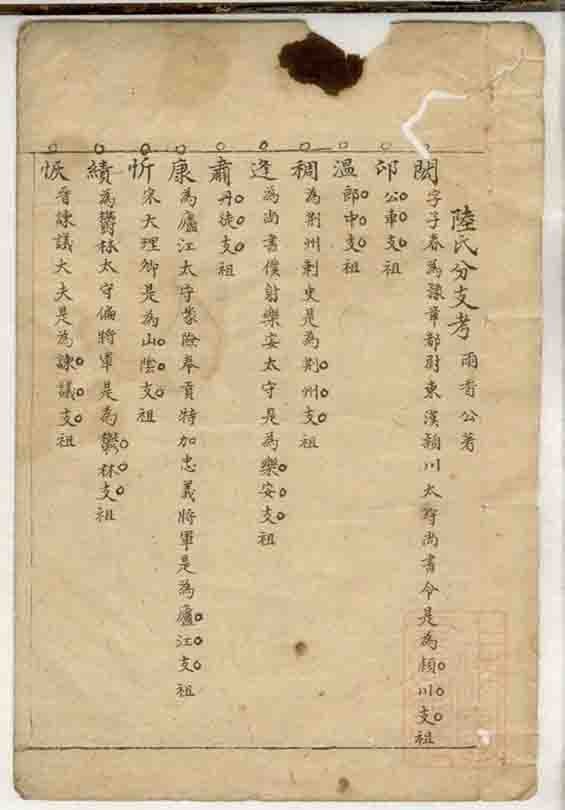 陸氏分支考 雨香公著
閎 字子春為豫章都尉東漢潁川太守尚書令是為潁川支祖
邙 公車支祖
溫 郎中支祖
稠 為荆州刺史是為荆州支祖
逢 為尚書僕射樂安太守是為樂安支祖
肅 丹徒支祖
康 為廬江太守蒙險奉貢特加忠義將軍是為廬江支祖
忻 宋大理卿是為山陰支祖
績 為鬱林太守偏將軍是為鬱林支祖
晉諫議大夫是為諫議支祖